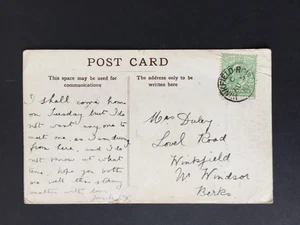 POST CARD
This space may be used for
communications
The address only to be
written here
I shall come home
on Tuesday but I do
not want any one to
meet me as I am
from here, and I do
not know at what
time. Hope you
me will this
matter with
Mrs Duley
Lovel Road
Winkfield
Nr Windsor
Berks